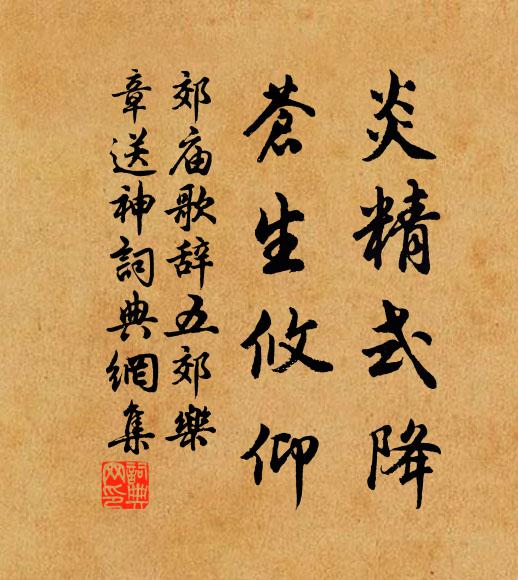 炎精式降
蒼生攸仰
郊庙歌辞五郊樂
章送神詞典網集